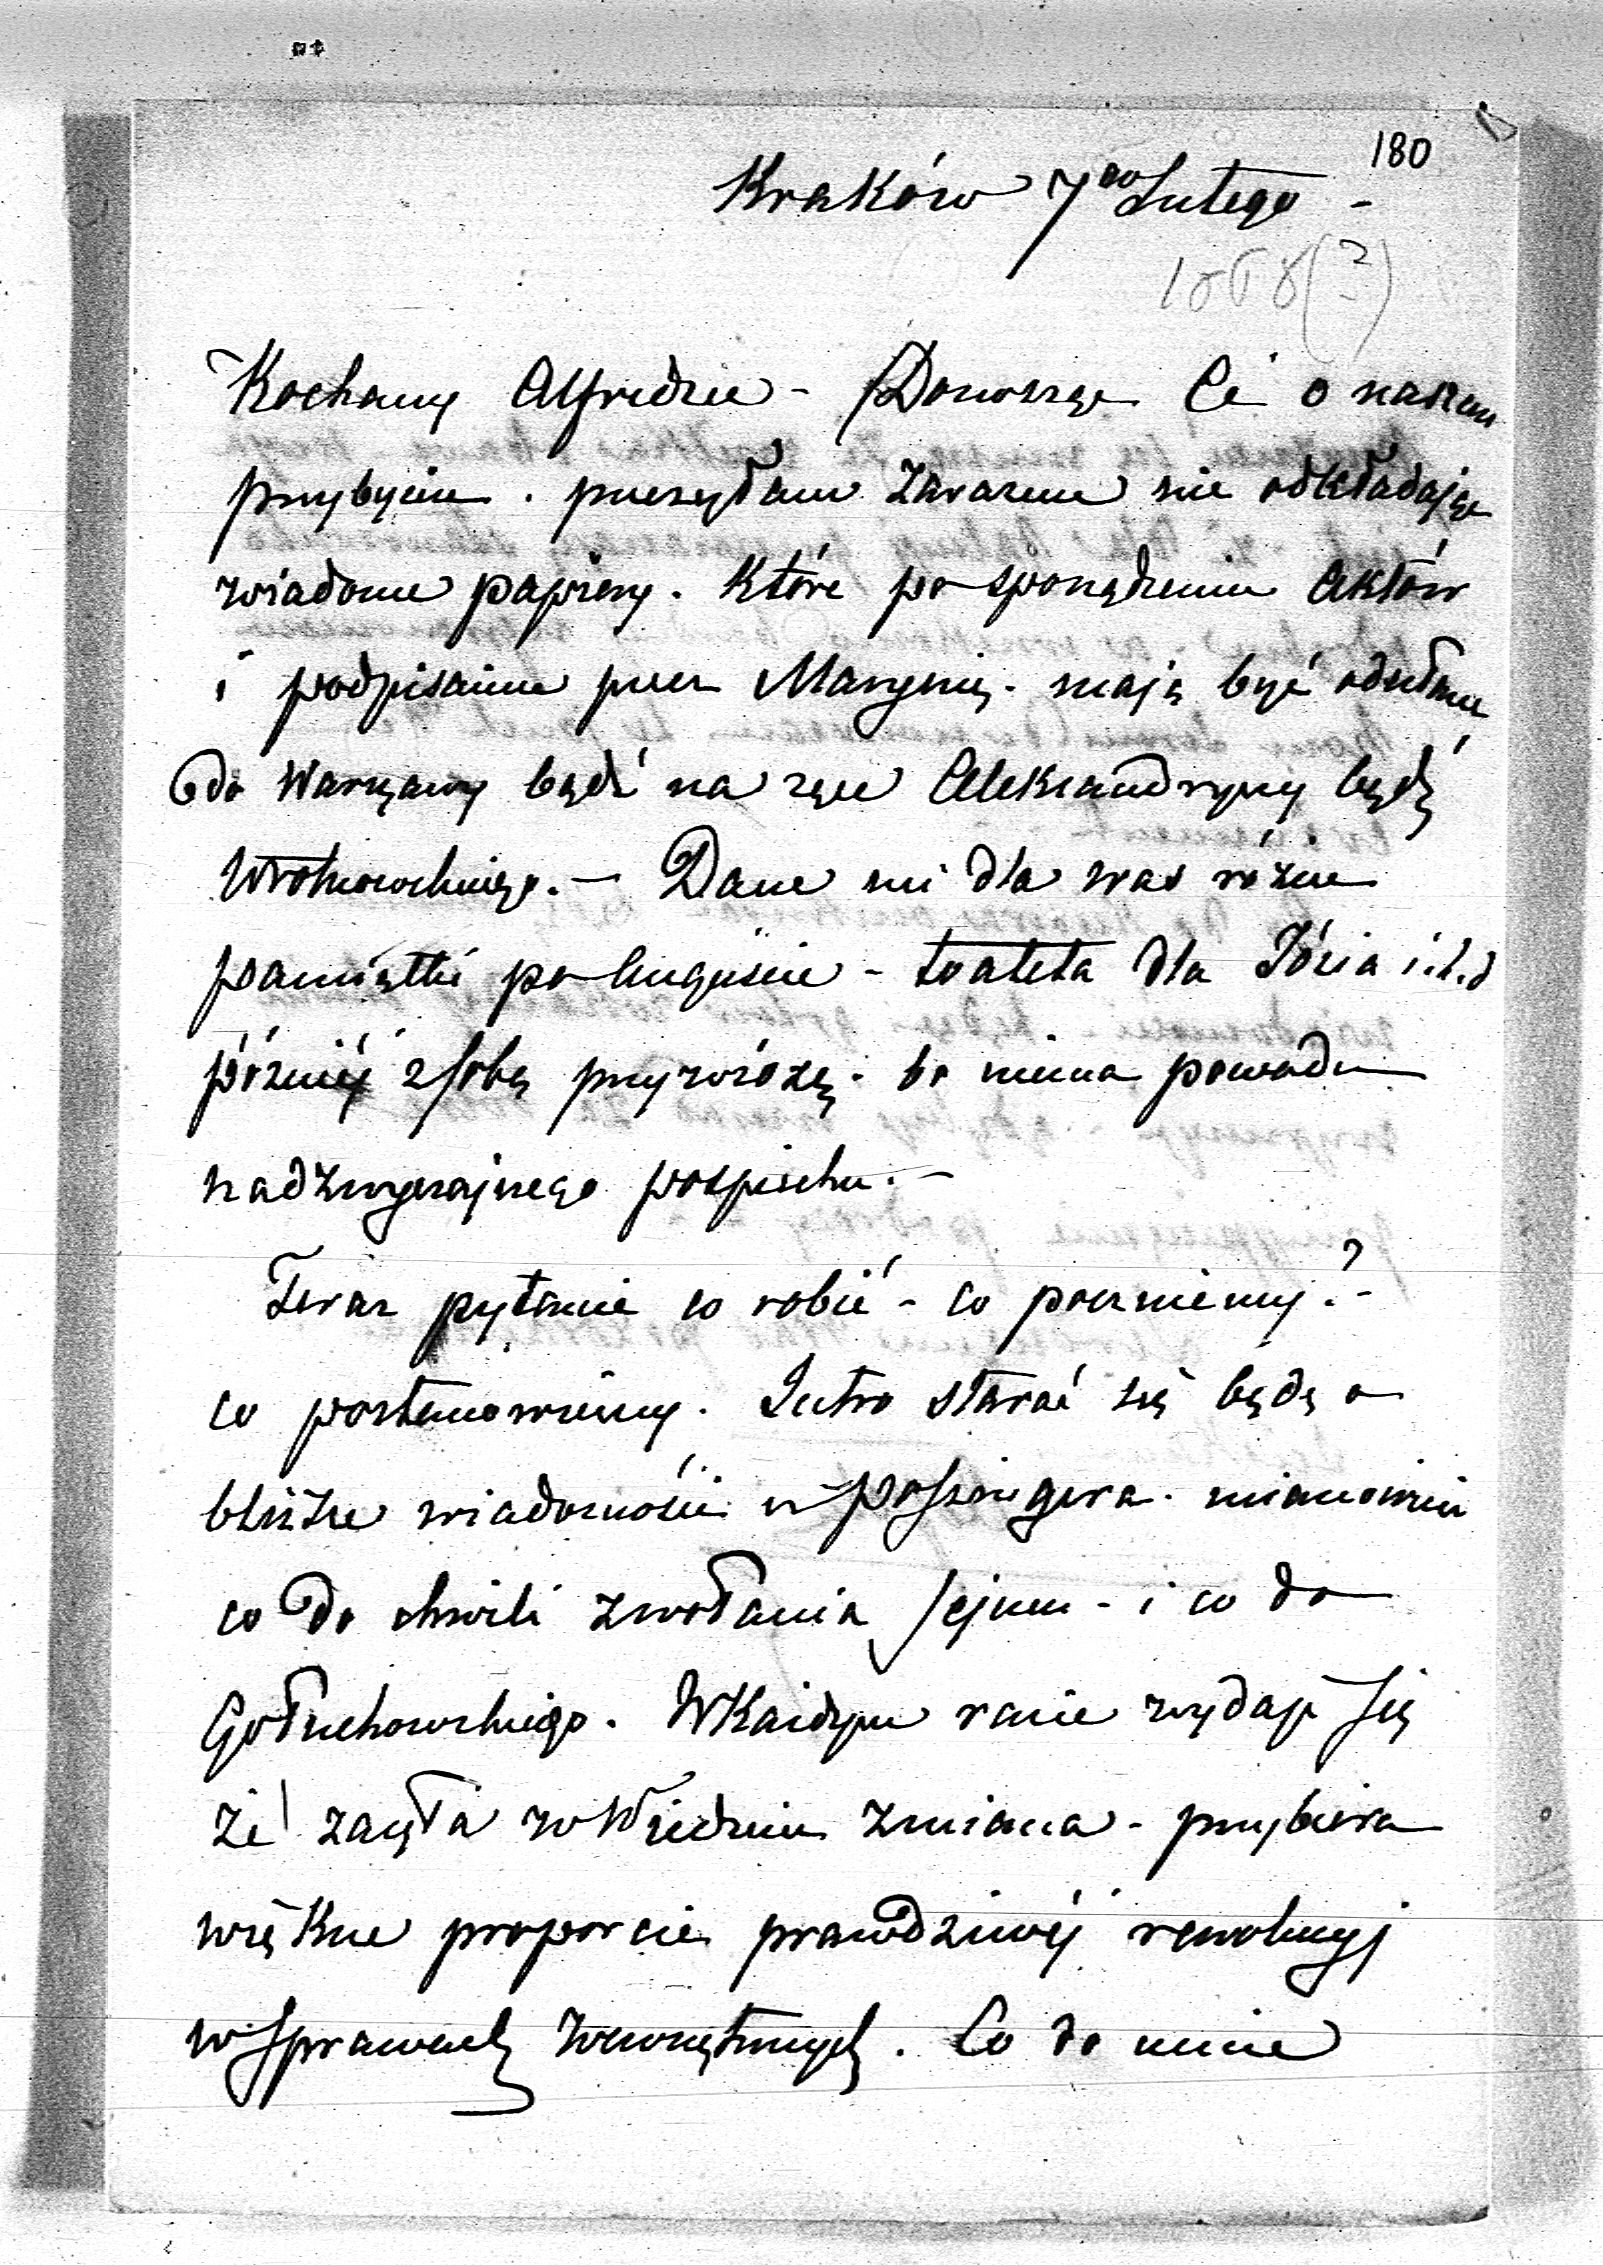 180
Kraków 7go Lutego -
1868 (?)
Kochany Alfredzie - Donoszę Ci o naszem
przybyciu. przesyłam zarazem nie odkładając
wiadome papiery. Które po sporządzeniu Aktów
i podpisaniu przez Marynię. mają być odesłane
do Warszawy bądź na ręce Aleksandryny bądź
Wrotnowskiego. - Dane mi dla was różne
pamiątki po Auguście - toaleta dla Józia i.t.d
później z sobą przywiozę. bo niema powodu
nadzwyczajnego pospiechu. -
Teraz pytanie co robić - co poczniemy? -
co postanowiemy. Jutro starać się będę o
bliższe wiadomości u Possingera. mianowicie
co do chwili zwołania Sejmu - i co do
Gołuchowskiego. W Każdym razie wydaje się
że zaszła w Wiedniu zmiana - przybiera
większe proporcie prawdziwéj rewolucyj
w sprawach wewnętrznych. Co do mnie